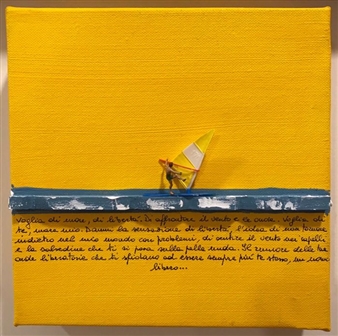 voglia di mare, di libertà, di affrontare il vento e le onde. Voglia di
te, mare mio. Dammi la sensazione di libertà, l'idea di non tornare
indietro nel mio mondo con problemi, di sentire il vento tra capelli
e la salsedine che ti si posa sulla pelle nuda. Il rumore delle tue
onde liberatorie che ti sfidano ad essere sempre più te stesso, un uomo
libero...